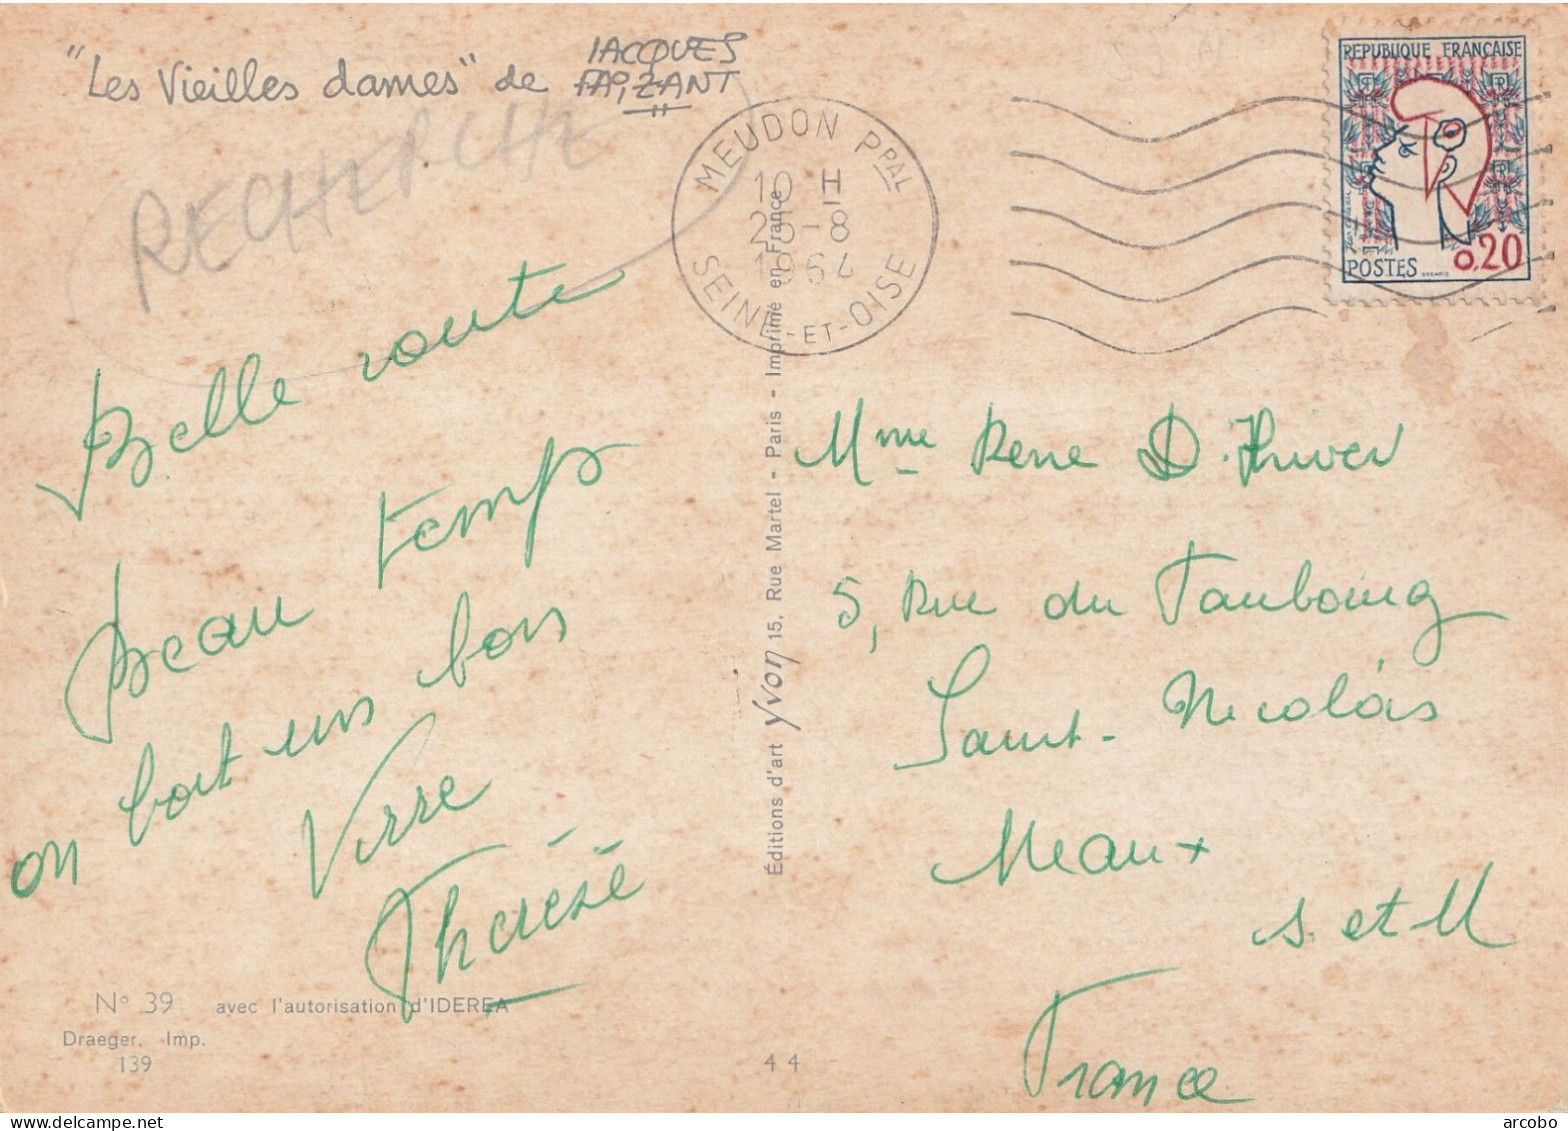 "Les Vieilles dames" de JACQUES FAIZANT
RECHERCHE
MEUDON PPAL
10 H
25-8
1964
SEINE-ET-OISE
REPUBLIQUE FRANÇAISE
POSTES 0,20
Belle route
Beau temps
on boit un bon
Verre
Thérèse
Mme Rene D.
5, Rue du Faubourg
Saint-Nicolas
Meaux
S. et M
France
Éditions d'art Yvon 15, Rue Martel - Paris - Imprimé en France
N° 39 avec l'autorisation d'IDEREA
Draeger. Imp.
139
44
Postcards-for-sale on Delcampe.net
arcobo